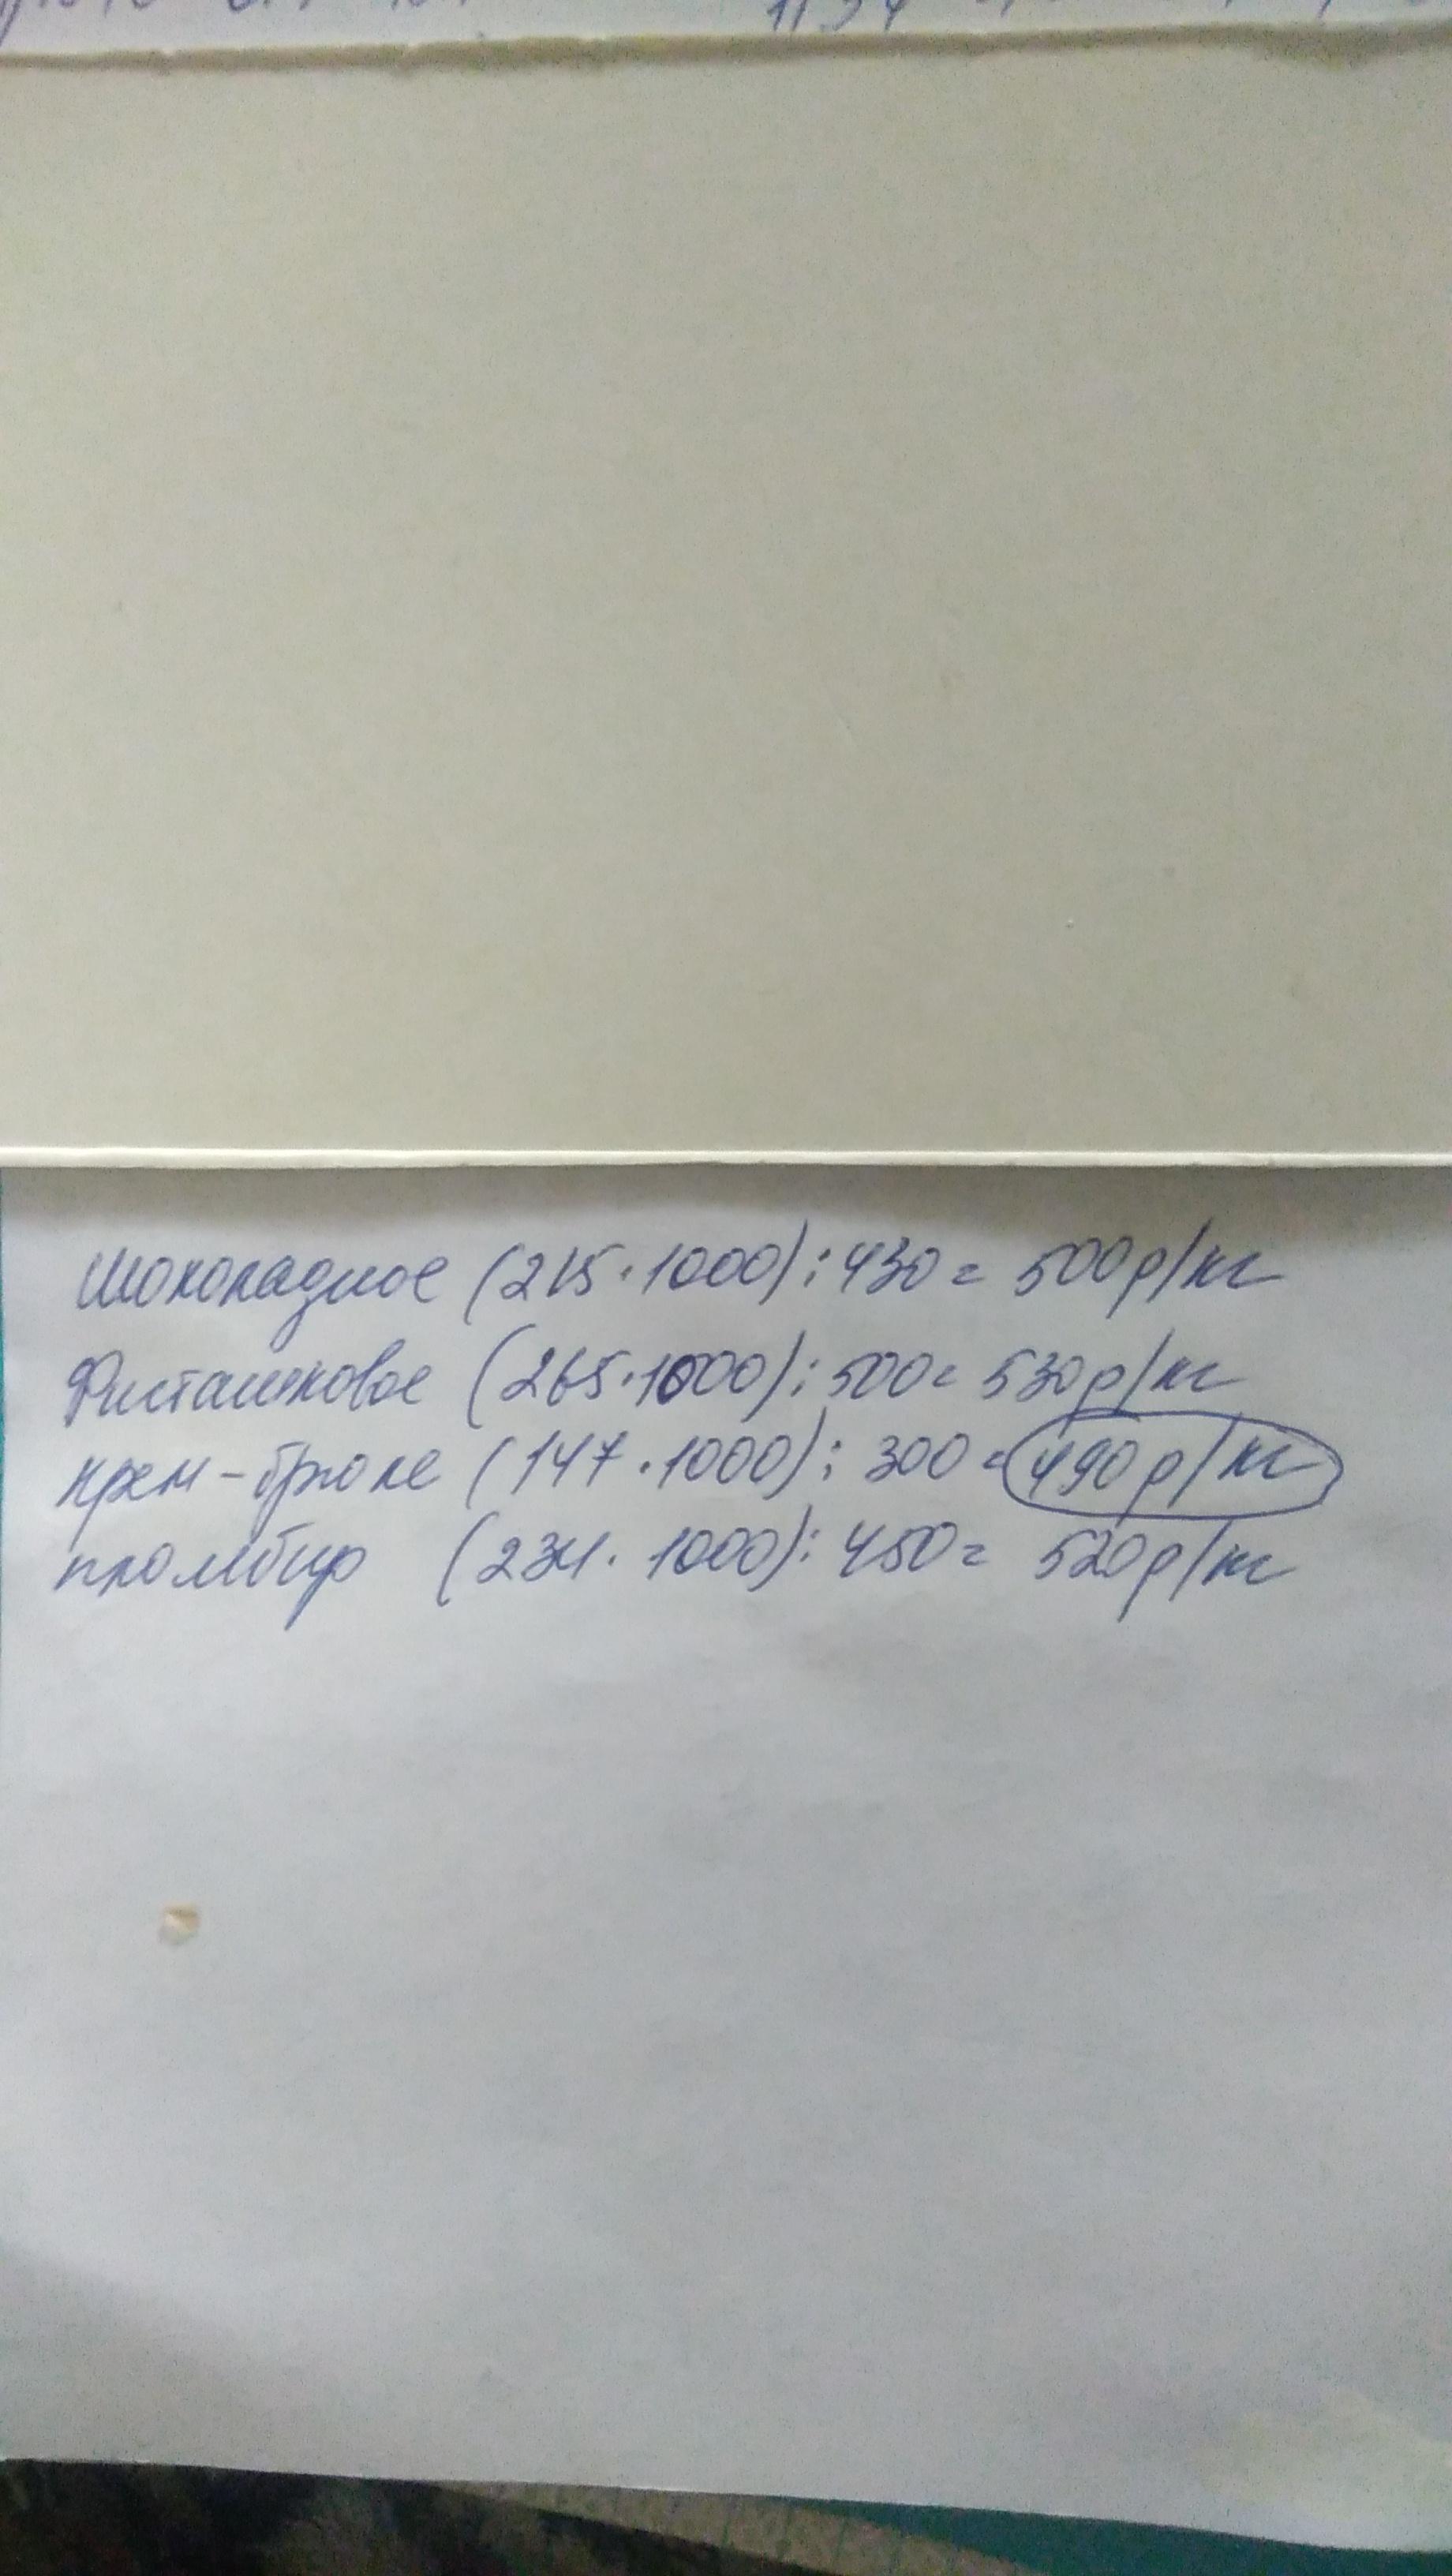 Шоколадное (215·1000):430= 500р/кг
Фисташковое (265·1000):500= 530р/кг
крем-брюле (147·1000): 300=490р/кг
пломбир (234·1000):450= 520р/кг